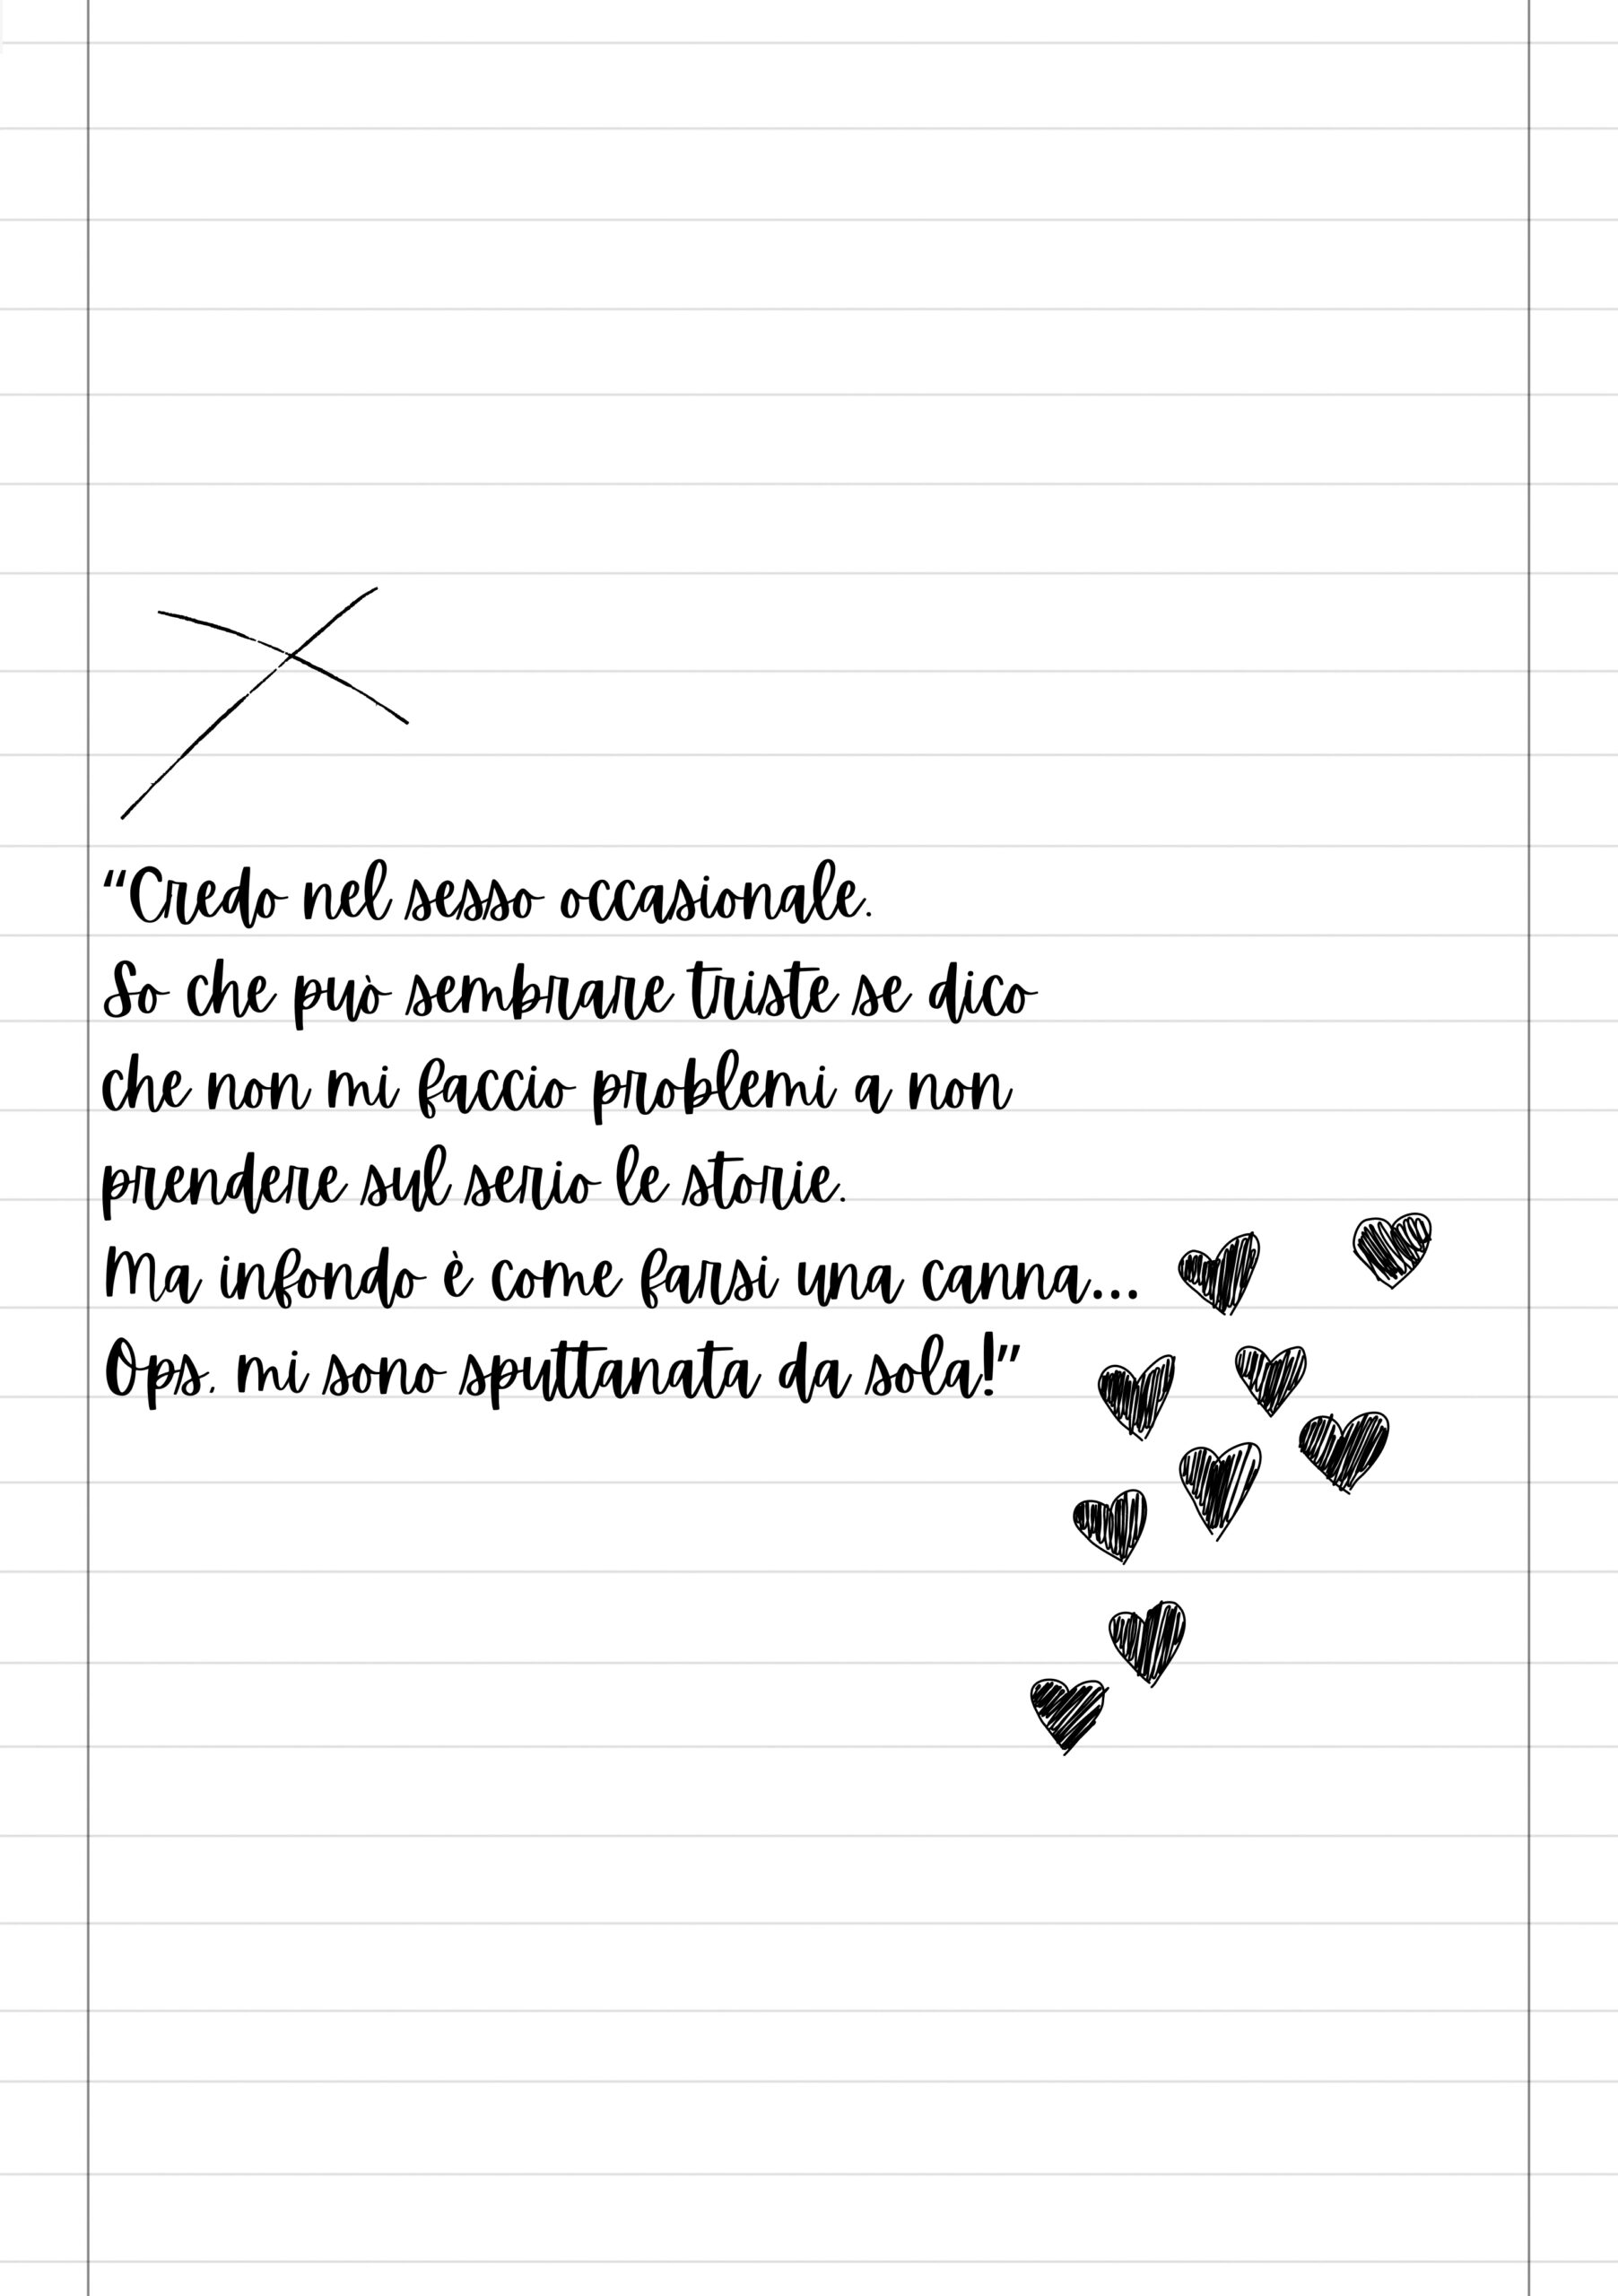 “Credo nel sesso ocasionale.
So che può sembrare triste se dico
che non mi faccio problemi a non
prendere sul serio le storie.
Ma infondo è come farsi una canna...
Ops, mi sono sputtanata da sola!”